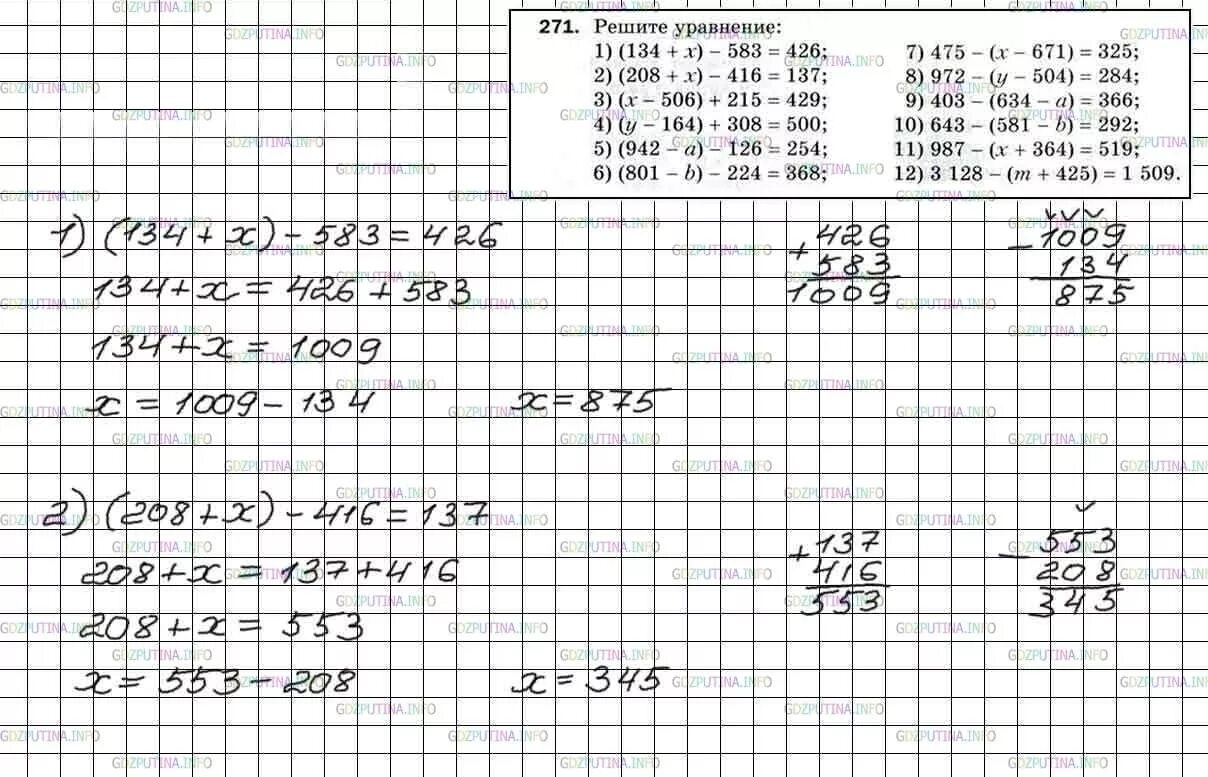 271. Решите уравнение:
1) (134 + x) − 583 = 426;
2) (208 + x) − 416 = 137;
3) (x − 506) + 215 = 429;
4) (y − 164) + 308 = 500;
5) (942 − a) − 126 = 254;
6) (801 − b) − 224 = 368;
7) 475 − (x − 671) = 325;
8) 972 − (y − 504) = 284;
9) 403 − (634 − a) = 366;
10) 643 − (581 − b) = 292;
11) 987 − (x + 364) = 519;
12) 3 128 − (m + 425) = 1 509.
1) (134 + x) − 583 = 426
134 + x = 426 + 583
134 + x = 1009
x = 1009 − 134
x = 875
+ 426
583
1009
− 1009
134
875
2) (208 + x) − 416 = 137
208 + x = 137 + 416
208 + x = 553
x = 553 − 208
x = 345
+ 137
416
553
− 553
208
345
GDZPUTINA.INFO